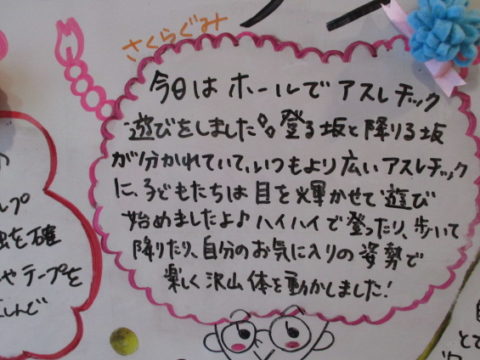 さくらぐみ
今日はホールでアスレチック
遊びをしました。登る坂と降りる坂
が分かれていて、いつもより広いアスレチック
に、子どもたちは目を輝かせて遊び
始めましたよ♪ハイハイで登ったり、歩いて
降りたり、自分のお気に入りの姿勢で
楽しく沢山体を動かしました!
を確
やテープを